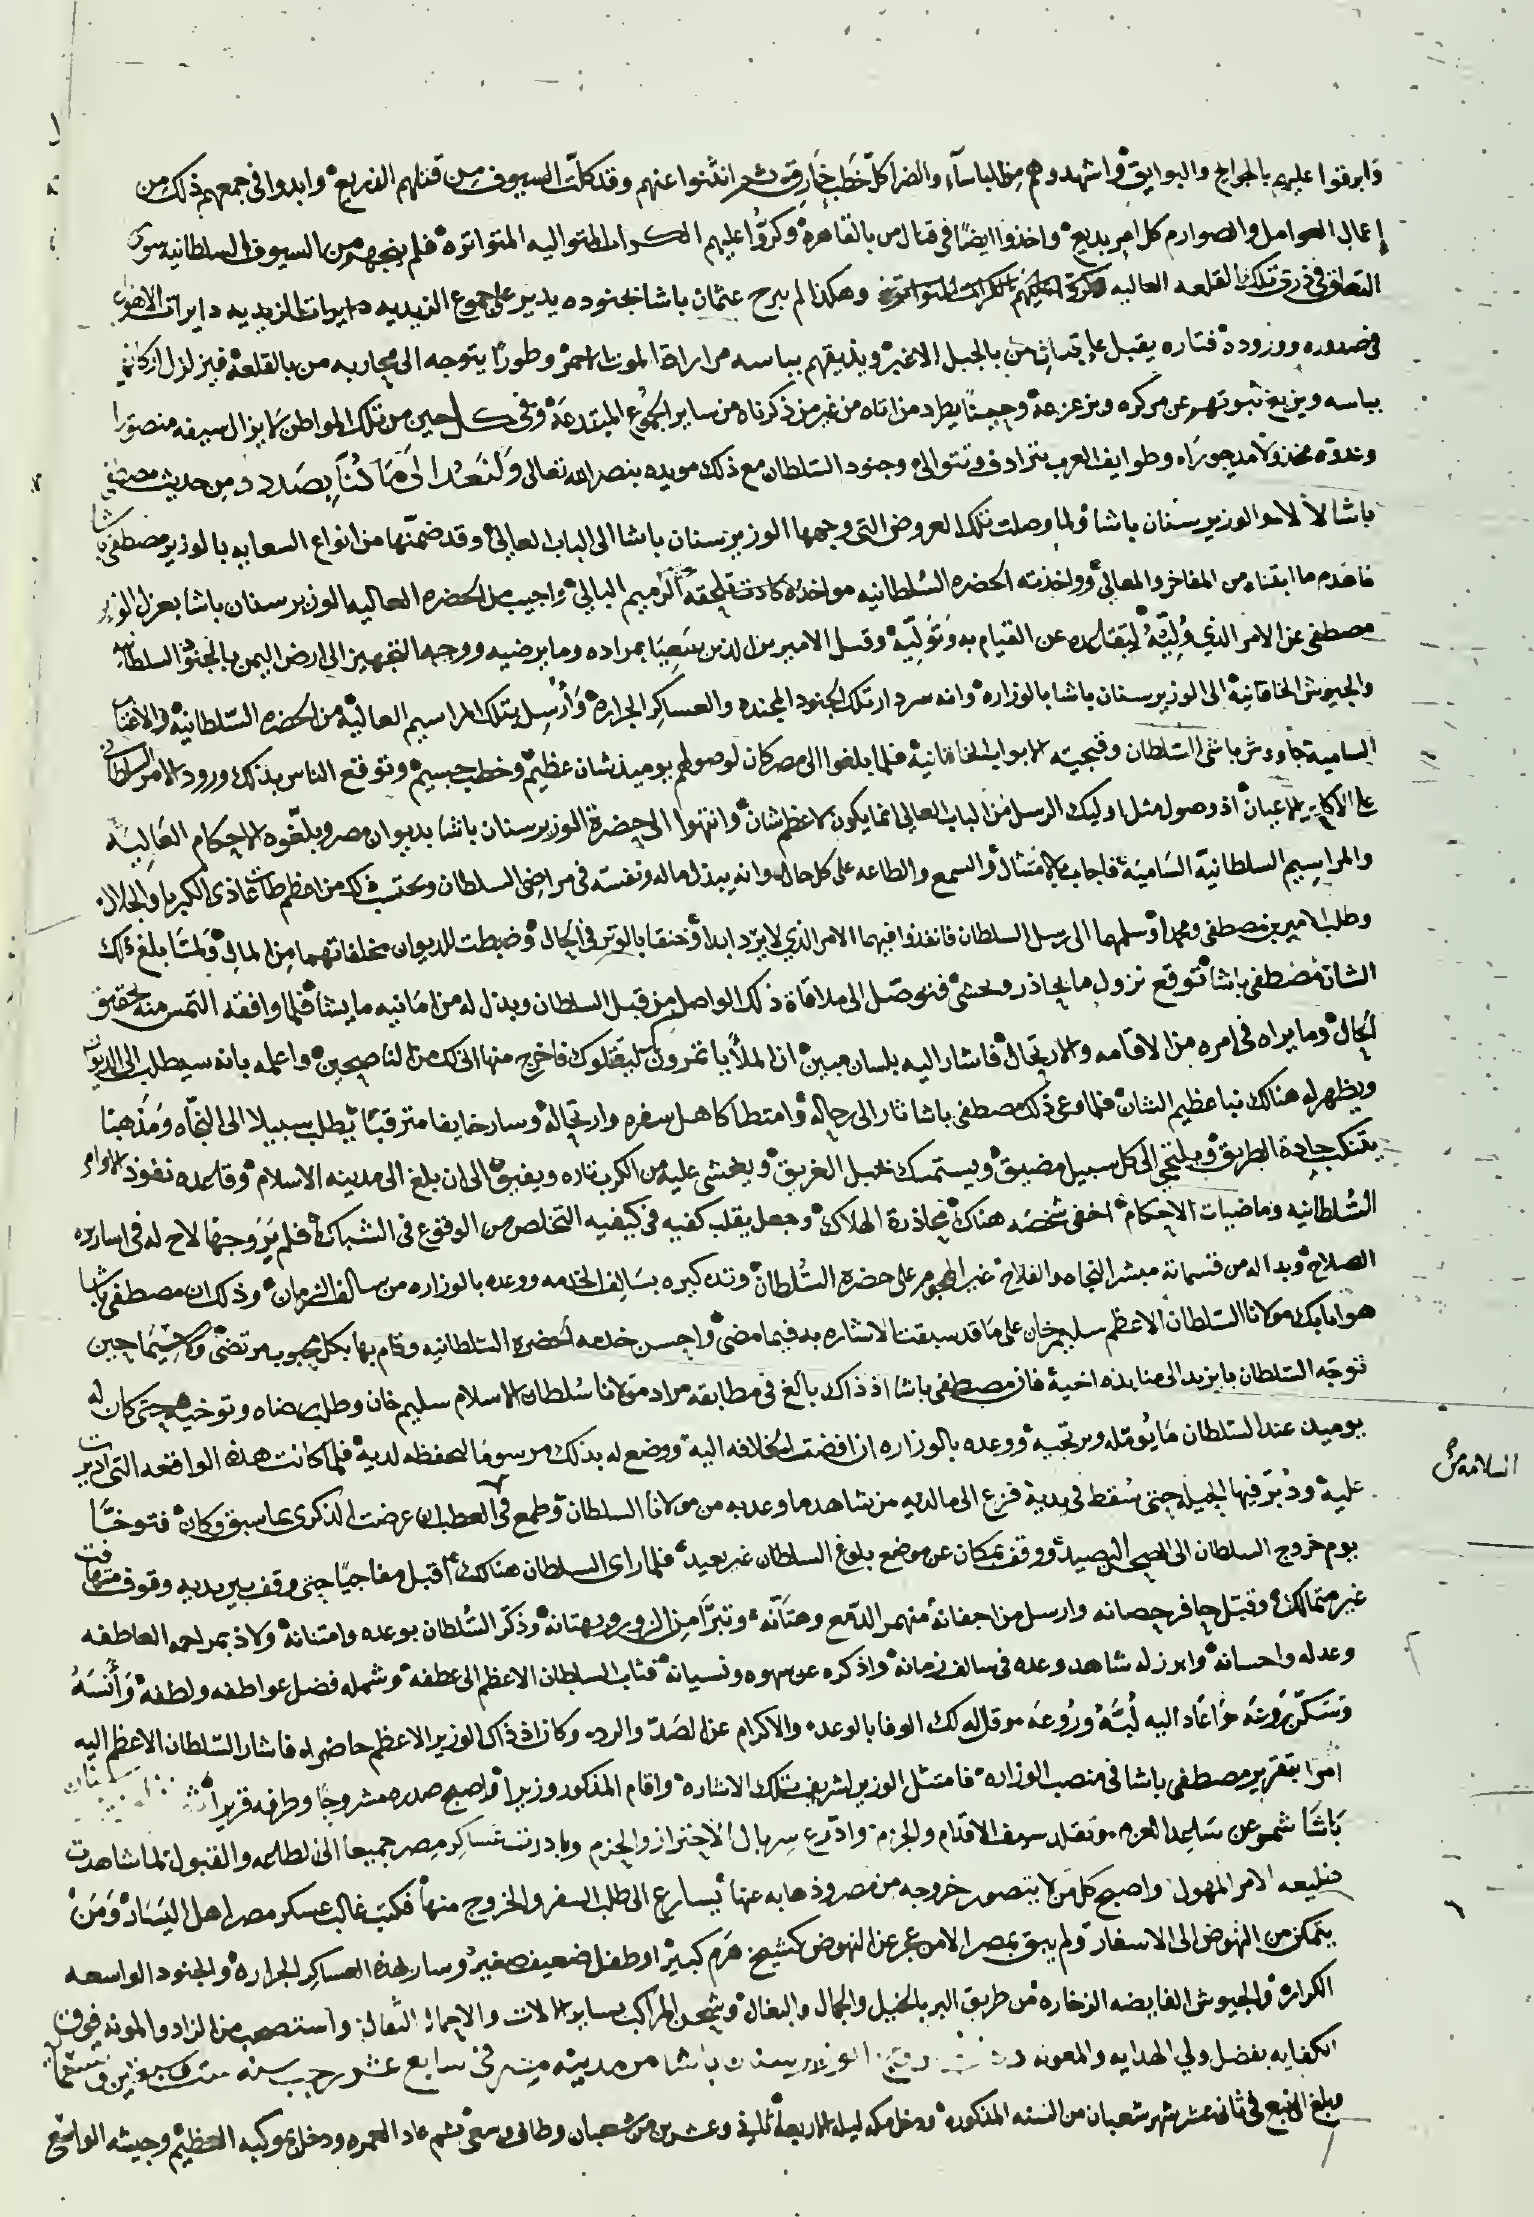 وابرقوا عليهم بالجراح والبوايق واشهدوهم من الباسآء والضرا كل خطب خارق ثم انثنوا عنهم وقد كلت السيوف من قتلهم الذريع وابدوا في جمعهم ذلك من
إعمال العوامل والصوارم كل امر بديع واخذوا ايضا في قتال من بالقاهرة وكروا عليهم الكرات المتواليه المتواتره فلم ينجهم من السيوف السلطانيه سوى
التعلق في ذرى تلك القلعه العاليه وهكذا لم يبرح عثمان باشا بجنوده يدير على جموع الزيديه دايرات
في صدوره ووروده فتاره يقبل على قتال من بالجبل الاغبر ويذيقهم بباسه مرارة الموت الاحمر وطورا يتوجه الى محاربه من بالقلعة فيزلزل اركانهم
بباسه ويزيغ ثبوتهم عن مركزه ويزعزعه وحينا يطرد من اتاه من غير من ذكرناه من ساير الجموع المبتدعة وفي كل حين من تلك المواطن لا يزال سيفه منصورا
وعدوه مخذولا مدحورا وطوايف العرب تترادف وتتوالى وجنود السلطان مع ذلك مويده بنصر الله تعالى ولنعد الى ما كنا بصدده من حديث مصطفى
باشا لالا والوزير سنان باشا ولما وصلت تلك العروض التي وجهها الوزير سنان باشا الى الباب العالي وقد ضمنها من انواع السعايه بالوزير مصطفى باشا
ما هدم ما ابقناه من المفاخر والمعالي وواخذته الحضره السلطانيه مواخذه كادت تلحقه الرميم البالي واجيب من الحضره العاليه الوزير سنان باشا بعزل الوزير
مصطفى عن الامر الذي وليه لتقاعده عن القيام به وتوليه وقتل الاميرين الذين سعيا بمراده وما يرضيه ووجه التجهيز الى ارض اليمن بالجنود السلطانيه
والجيوش الخاقانية الى الوزير سنان باشا بالوزاره وانه سردار تلك الجنود المجنده والعساكر الجراره وأرسل بتلك المراسيم العالية من الحضره السلطانية والاعتاب
السامية جاووش باشى السلطان وقبجيه الابواب الخاقانية فلما بلغوا الى مصر كان لوصولهم يوميذ شان عظيم وخطب جسيم وتوقع الناس بذلك ورود الامر السلطاني
على الاكابر والاعيان اذ وصول مثل اوليك الرسل من الباب العالي انما يكون لاعظم شان وانتهوا الى حضرة الوزير سنان باشا بديوان مصر وبلغوه الاحكام العالية
والمراسيم السلطانية السامية فاجاب بالامتثال والسمع والطاعه على كل حال وانه يبذل ماله ونفسه في مراضى السلطان ويحتسب ذلك من اعظم طاعات ذي الكبريا والجلال
وطلب الاميرين مصطفى ومحمدا وسلمهما الى رسل السلطان فانفذوا فيهما الامر الذي لا يرد ابدا وخنقا بالوتر في الحال وضبطت للديوان مخلفاتهما من المال ولما بلغ ذلك
الشان مصطفى باشا توقع نزول ما يحاذر ويخشى فتوصل الى ملاقاة ذلك الواصل من قبل السلطان وبذل له من امانيه ما يشا فلما وافقه التمس منه تحقيق
الحال وما يراه في امره من الاقامه والارتحال فاشار اليه بلسان مبين ان الملأ ياتمرون بك ليقتلوك فاخرج منها اني لك من الناصحين واعلمه بانه سيطلب الى الديوان
ويظهر له هناك نبا عظيم الشان فلما وعى ذلك مصطفى باشا ثار الى رحاله وامتطا كاهل سفره وارتحاله وسار خايفا مترقبا يطلب سبيلا الى النجاه ومذهبا
يتنكب جادة الطريق ويلتجي الى كل سبيل مضيق ويستمسك بحبل الغريق ويغشى عليه من الكرب تاره ويفيق الى ان بلغ الى مدينه الاسلام وقاعده نفوذ الاوامر
السلطانيه وماضيات الاحكام اخفى شخصه هناك محاذرة الهلاك وجعل يقلب كفيه في كيفيه التخلص من الوقوع في الشباك فلم ير وجها لاح له في اساريره
الصلاح وبدا له من قسماته مبشر النجاه والفلاح غير الهجوم على حضرة السلطان وتذكيره بسالف الخدمه ووعده بالوزاره من سالف الزمان وذلك ان مصطفى باشا
هو اتابك مولانا السلطان الاعظم سليم خان على ما قد سبقت الاشاره به فيما مضى واحسن خدمه الحضره السلطانيه وقام بها بكل محبوب مرتضى ولا سيما حين
توجه السلطان بايزيد الى منابذه اخيه فان مصطفى باشا اذ ذاك بالغ في مطابقه مراد مولانا سلطان الاسلام سليم خان وطلب رضاه وتوخيه حتى كان له
يوميذ عند السلطان ما يؤمله ويرتجيه ووعده بالوزاره ان افضت الخلافه اليه ووضع له بذلك مرسوما لحفظه لديه فلما كانت هذه الواقعه التي اديرت
عليه ودبر فيها الحيله حتى سقط في يديه فزع الى ما لديه من شاهد ما وعد به من مولانا السلطان وطمع في العطف ان عرضت الذكرى عما سبق وكان فتوخا
السلامه صح
يوم خروج السلطان الى الصيد ووقف بمكان عن موضع بلوغ السلطان غير بعيد فلما راى السلطان هنالك اقبل مفاجيا حتى وقف بين يديه وقوف متهافت
غير متمالك وقبل حافر حصانه وارسل من اجفانه منهمر الدمع وهتانه وتبرأ من الزور وبهتانه وذكر السلطان بوعده وامتنانه ولاذ بمراحمه العاطفه
وعدله واحسانه وابرز له شاهد وعده في سالف زمانه واذكره عن سهوه ونسيانه فثاب السلطان الاعظم الى عطفه وشمله فضل عواطفه ولطفه وأنسه
وسكن روعه حتى عاد اليه لبه وروعه وقال له لك الوفا بالوعد والاكرام عن الصد والرد وكان اذ ذاك الوزير الاعظم حاضرا فاشار السلطان الاعظم اليه
امرا بتقرير مصطفى باشا في منصب الوزاره فامتثل الوزير لشريف تلك الاشاره واقام المذكور وزيرا واصبح صدره مشروحا وطرفه قريرا
باشا شمر عن ساعد العزم وتقلد سيف الاقدام والجزم وادرع سربال الاحتراز والحزم وبادرت عساكر مصر جميعا الى الطاعه والقبول لما شاهدت
من خليعه الامر المهول واصبح كل من لا يتصور خروجه من مصر وذهابه عنها يسارع الى طلب السفر والخروج منها فكتب غالب عسكر مصر اهل اليسار ومن
يتمكن من النهوض الى الاسفار ولم يبق بمصر الا من عجز عن النهوض كشيخ هرم كبير او طفل ضعيف صغير وسار بهذه العساكر الجراره والجنود الواسعه
الكراره والجيوش الفايضه الزخاره من طريق البر بالخيل والجمال والبغال وشحن المراكب بساير الالات والاحمال الثقال واستصحب من الزاد والمونه فوق
الكفايه بفضل ولي الهدايه والمعونه الوزير سنان باشا من مدينه مصر في سابع عشر رجب سنه ست وسبعين وتسعمايه
وبلغ الينبع في ثاني عشر شهر شعبان من السنه المذكوره ودخل مكه ليله الاربعا ثاني وعشرين من شعبان وطاف وسعى ثم عاد العمره ودخل في موكبه العظيم وجيشه الواسع